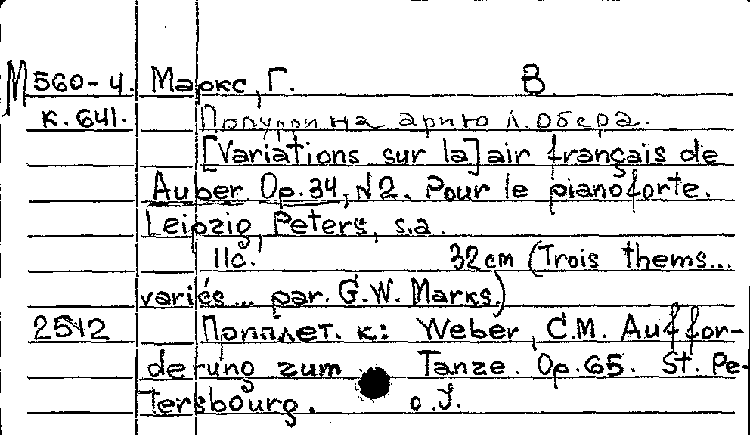 М 560-4. Маркс, Г. В.
к. 641. Попурри на арию Л. Обера.
[Variations sur la] air français de
Auber Op. 34, N2. Pour le pianoforte.
Leipzig, Peters, s.a.
11с. 32 cm (Trois thems...
variés... par. G.W. Marks.)
2512 Припл​ет. к: Weber, C.M. Auffor-
derung zum Tanze. Op. 65. St. Pe-
tersbourg. o.J.